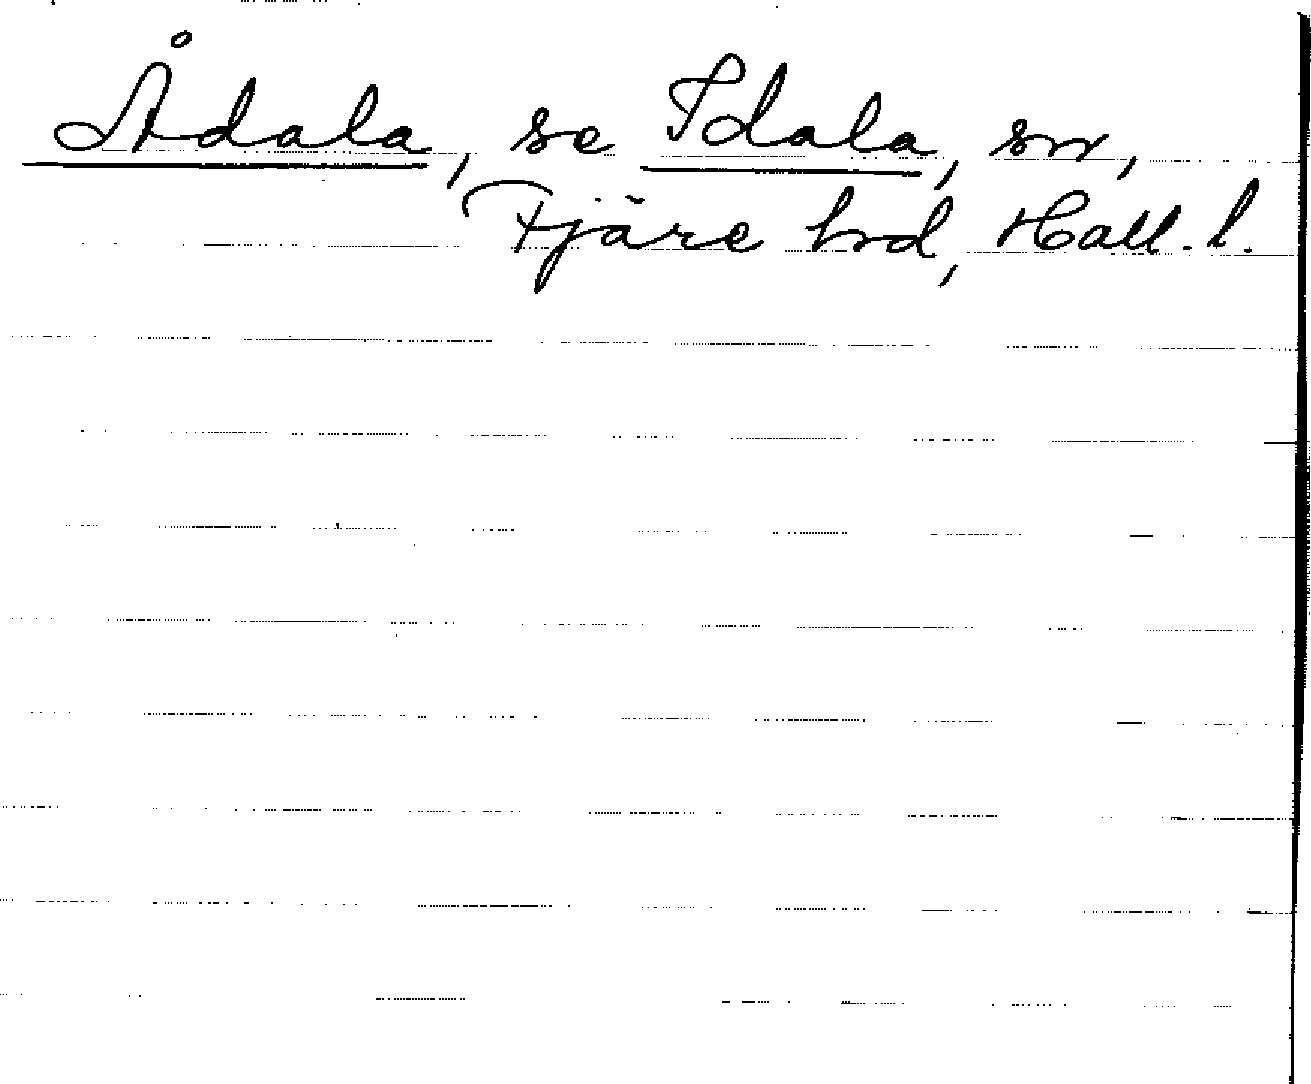 Ådala, se Idala, sn,
Fjäre hrd, Hall. l.